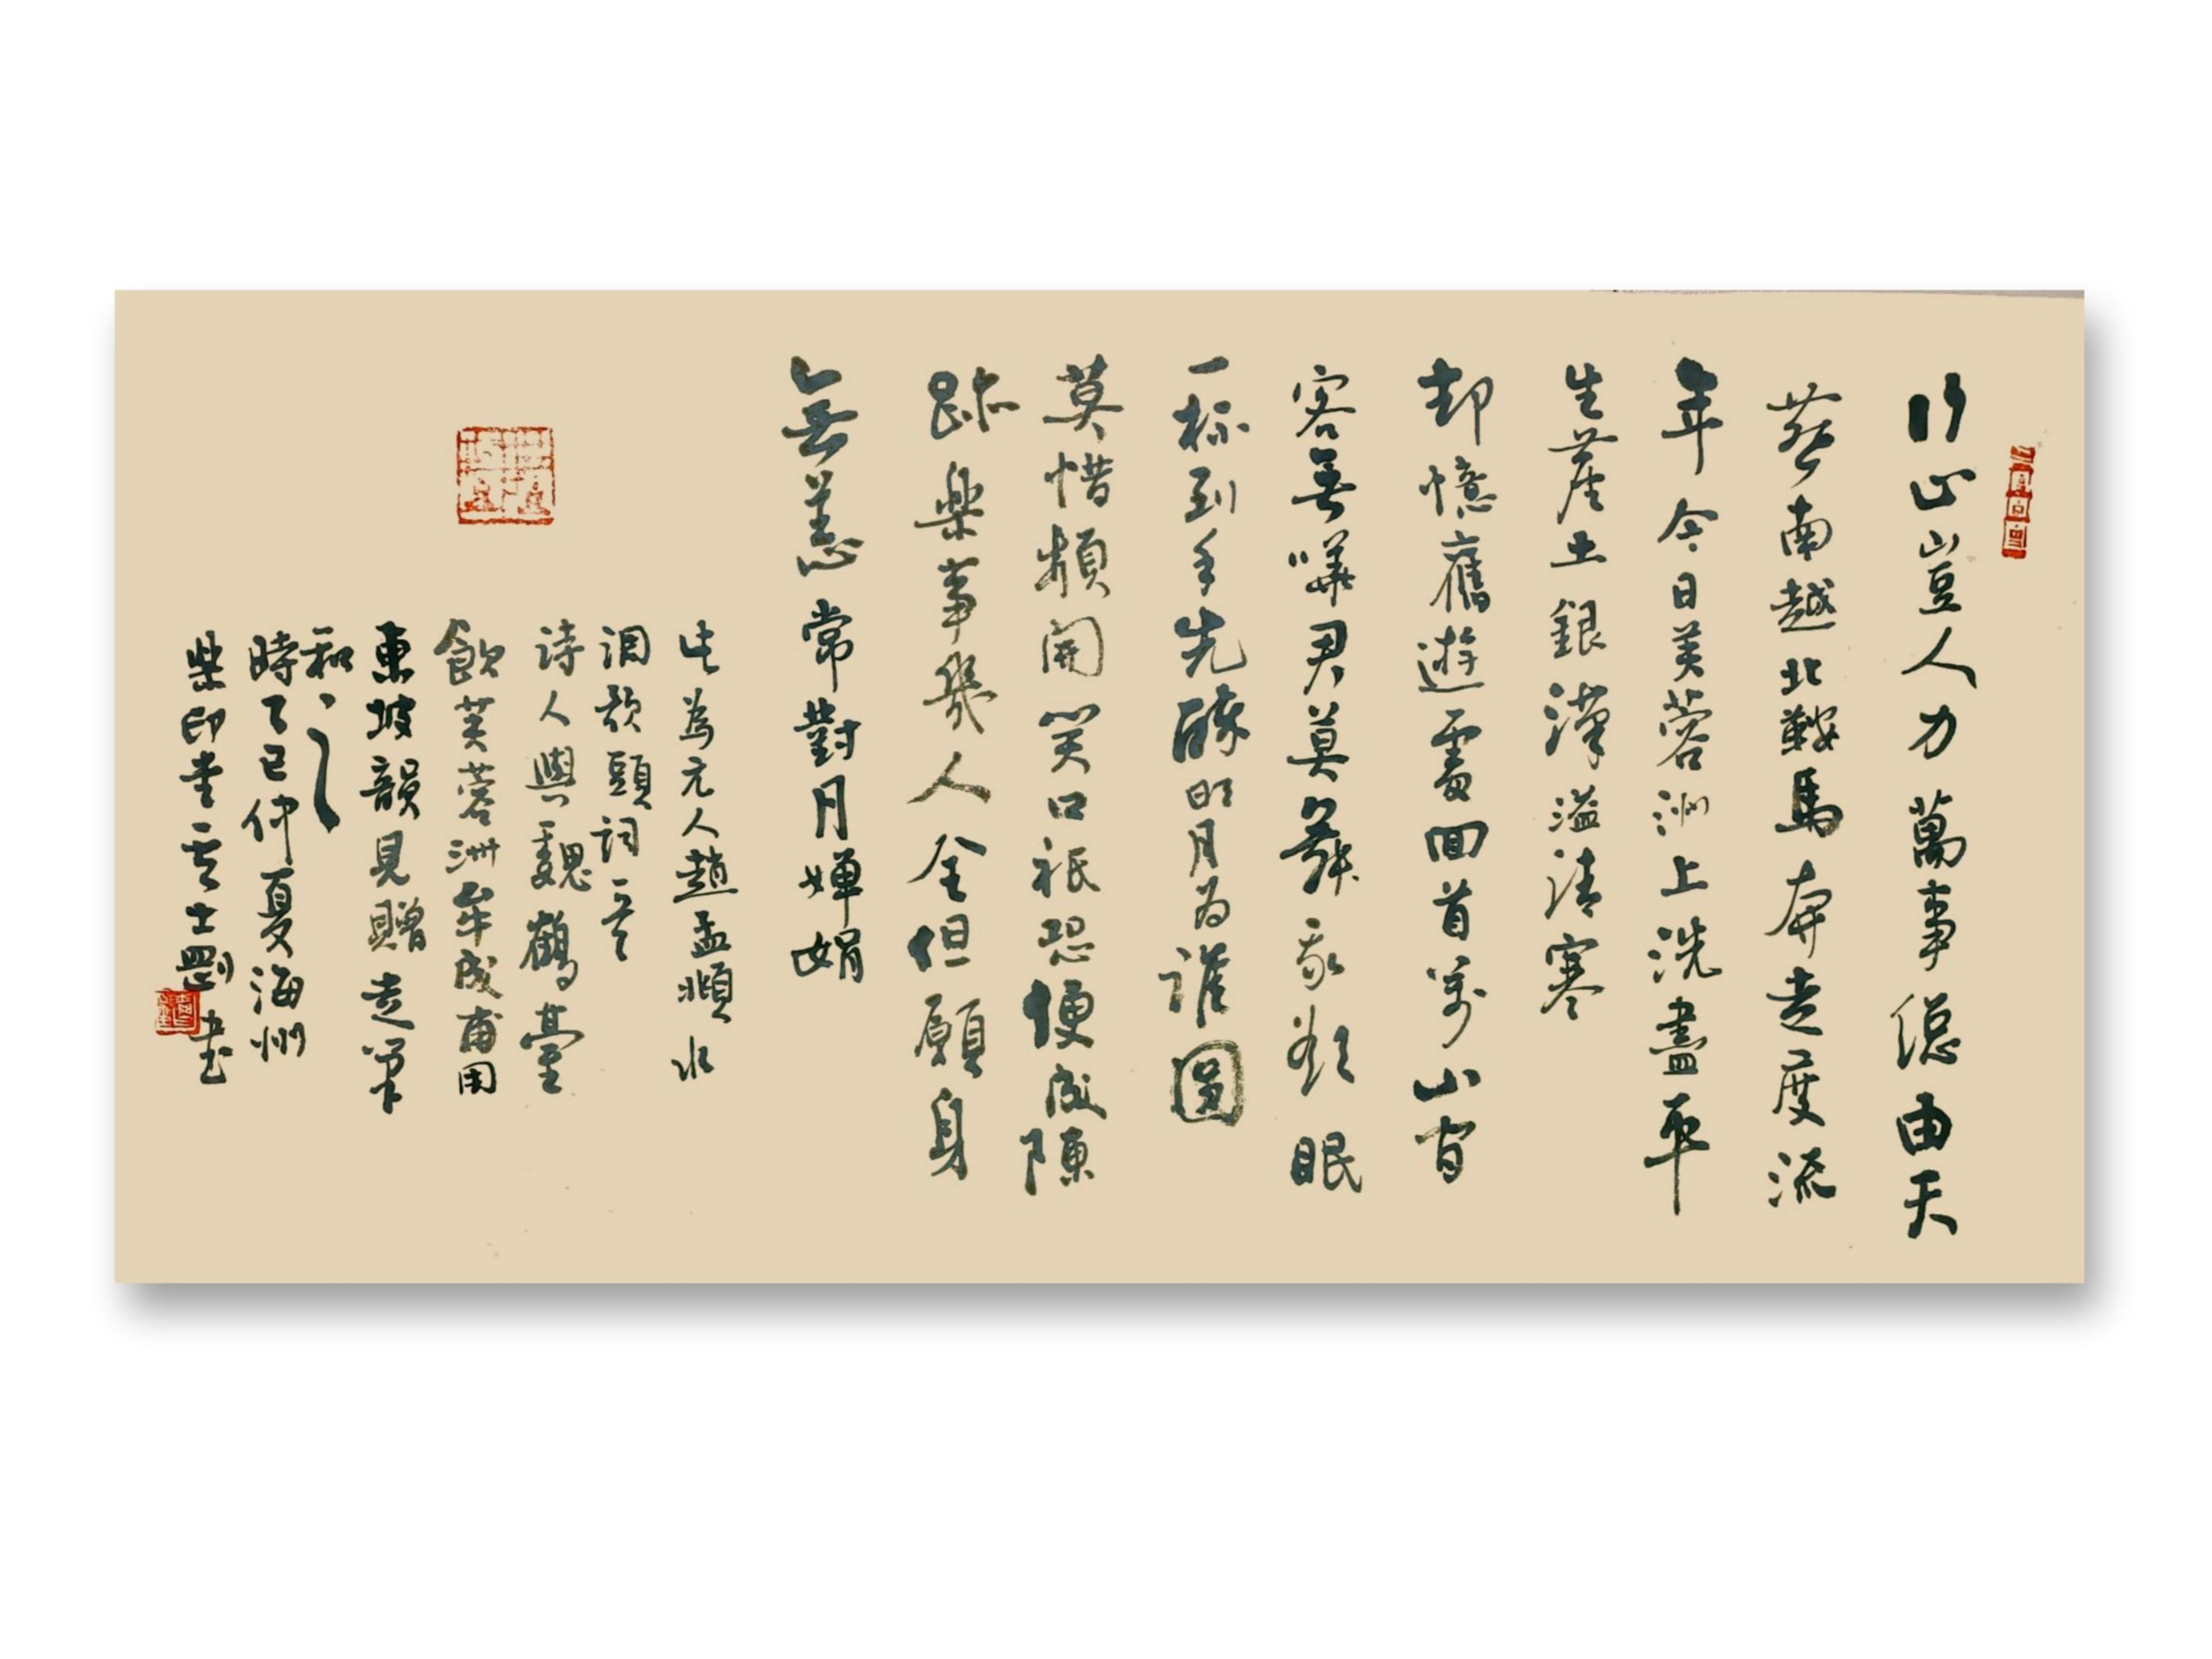 行止豈人力萬事總由天
燕南越北鞍馬奔走度流
年今日芙蓉洲上洗盡平
生塵土銀漢溢清寒
却憶舊遊處回首萬山間
客無嘩君莫舞我欲眠
一杯到手先醉明月為誰圓
莫惜頻開笑口祇恐便成陳
跡樂事幾人全但願身
無恙常對月嬋娟
此為元人趙孟頫水
調歌頭詞一首
詩人與魏鶴臺
飲芙蓉洲牟成甫用
東坡韻見贈走筆
和之
時乙巳仲夏海州
柴印堂云士剛書